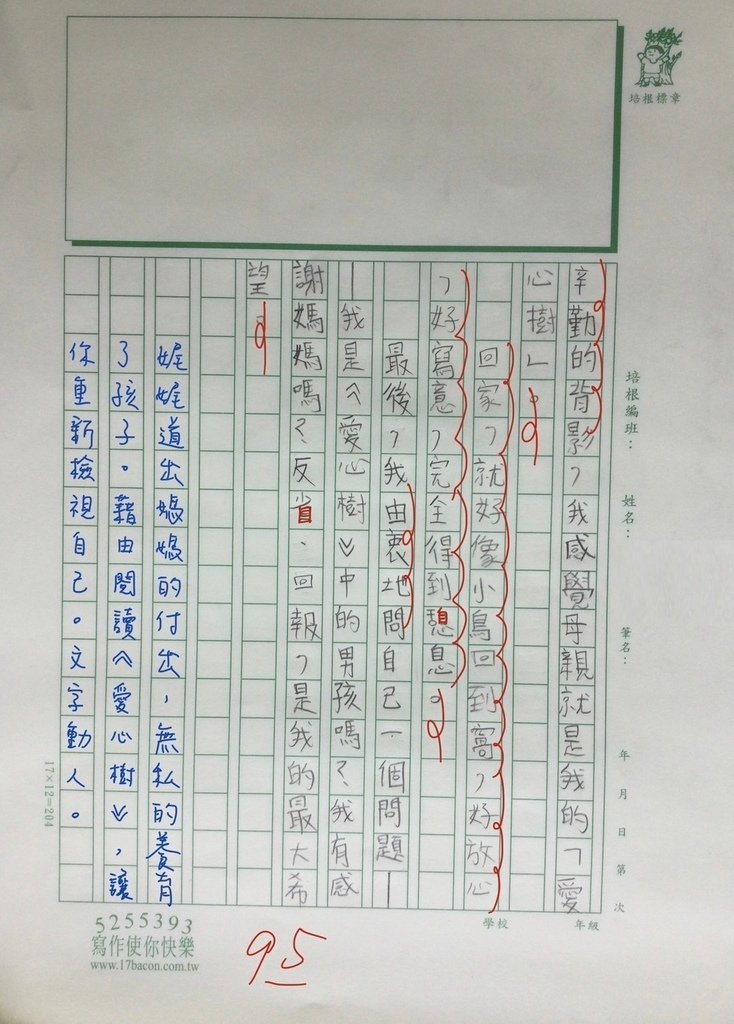 培根標章
培根編班：
姓名：
筆名：
年 月 日 第 次
辛勤的背影，我感覺母親就是我的「愛
心樹」。
回家，就好像小鳥回到窩，好放心
，好寫意，完全得到憩息。
最後，我由衷地問自己一個問題—
—我是《愛心樹》中的男孩嗎？我有感
謝媽媽嗎？反省、回報，是我的最大希
望。
娓娓道出媽媽的付出，無私的養育
了孩子。藉由閱讀《愛心樹》，讓
你重新檢視自己。文字動人。
17×12=204
年級
學校
5255393
寫作使你快樂
www.17bacon.com.tw
95